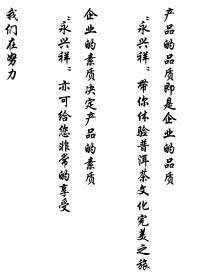 产品的品质即是企业的品质
“永兴祥”带你体验普洱茶文化完美之旅
企业的素质决定产品的素质
“永兴祥”亦可给您非常的享受
我们在努力